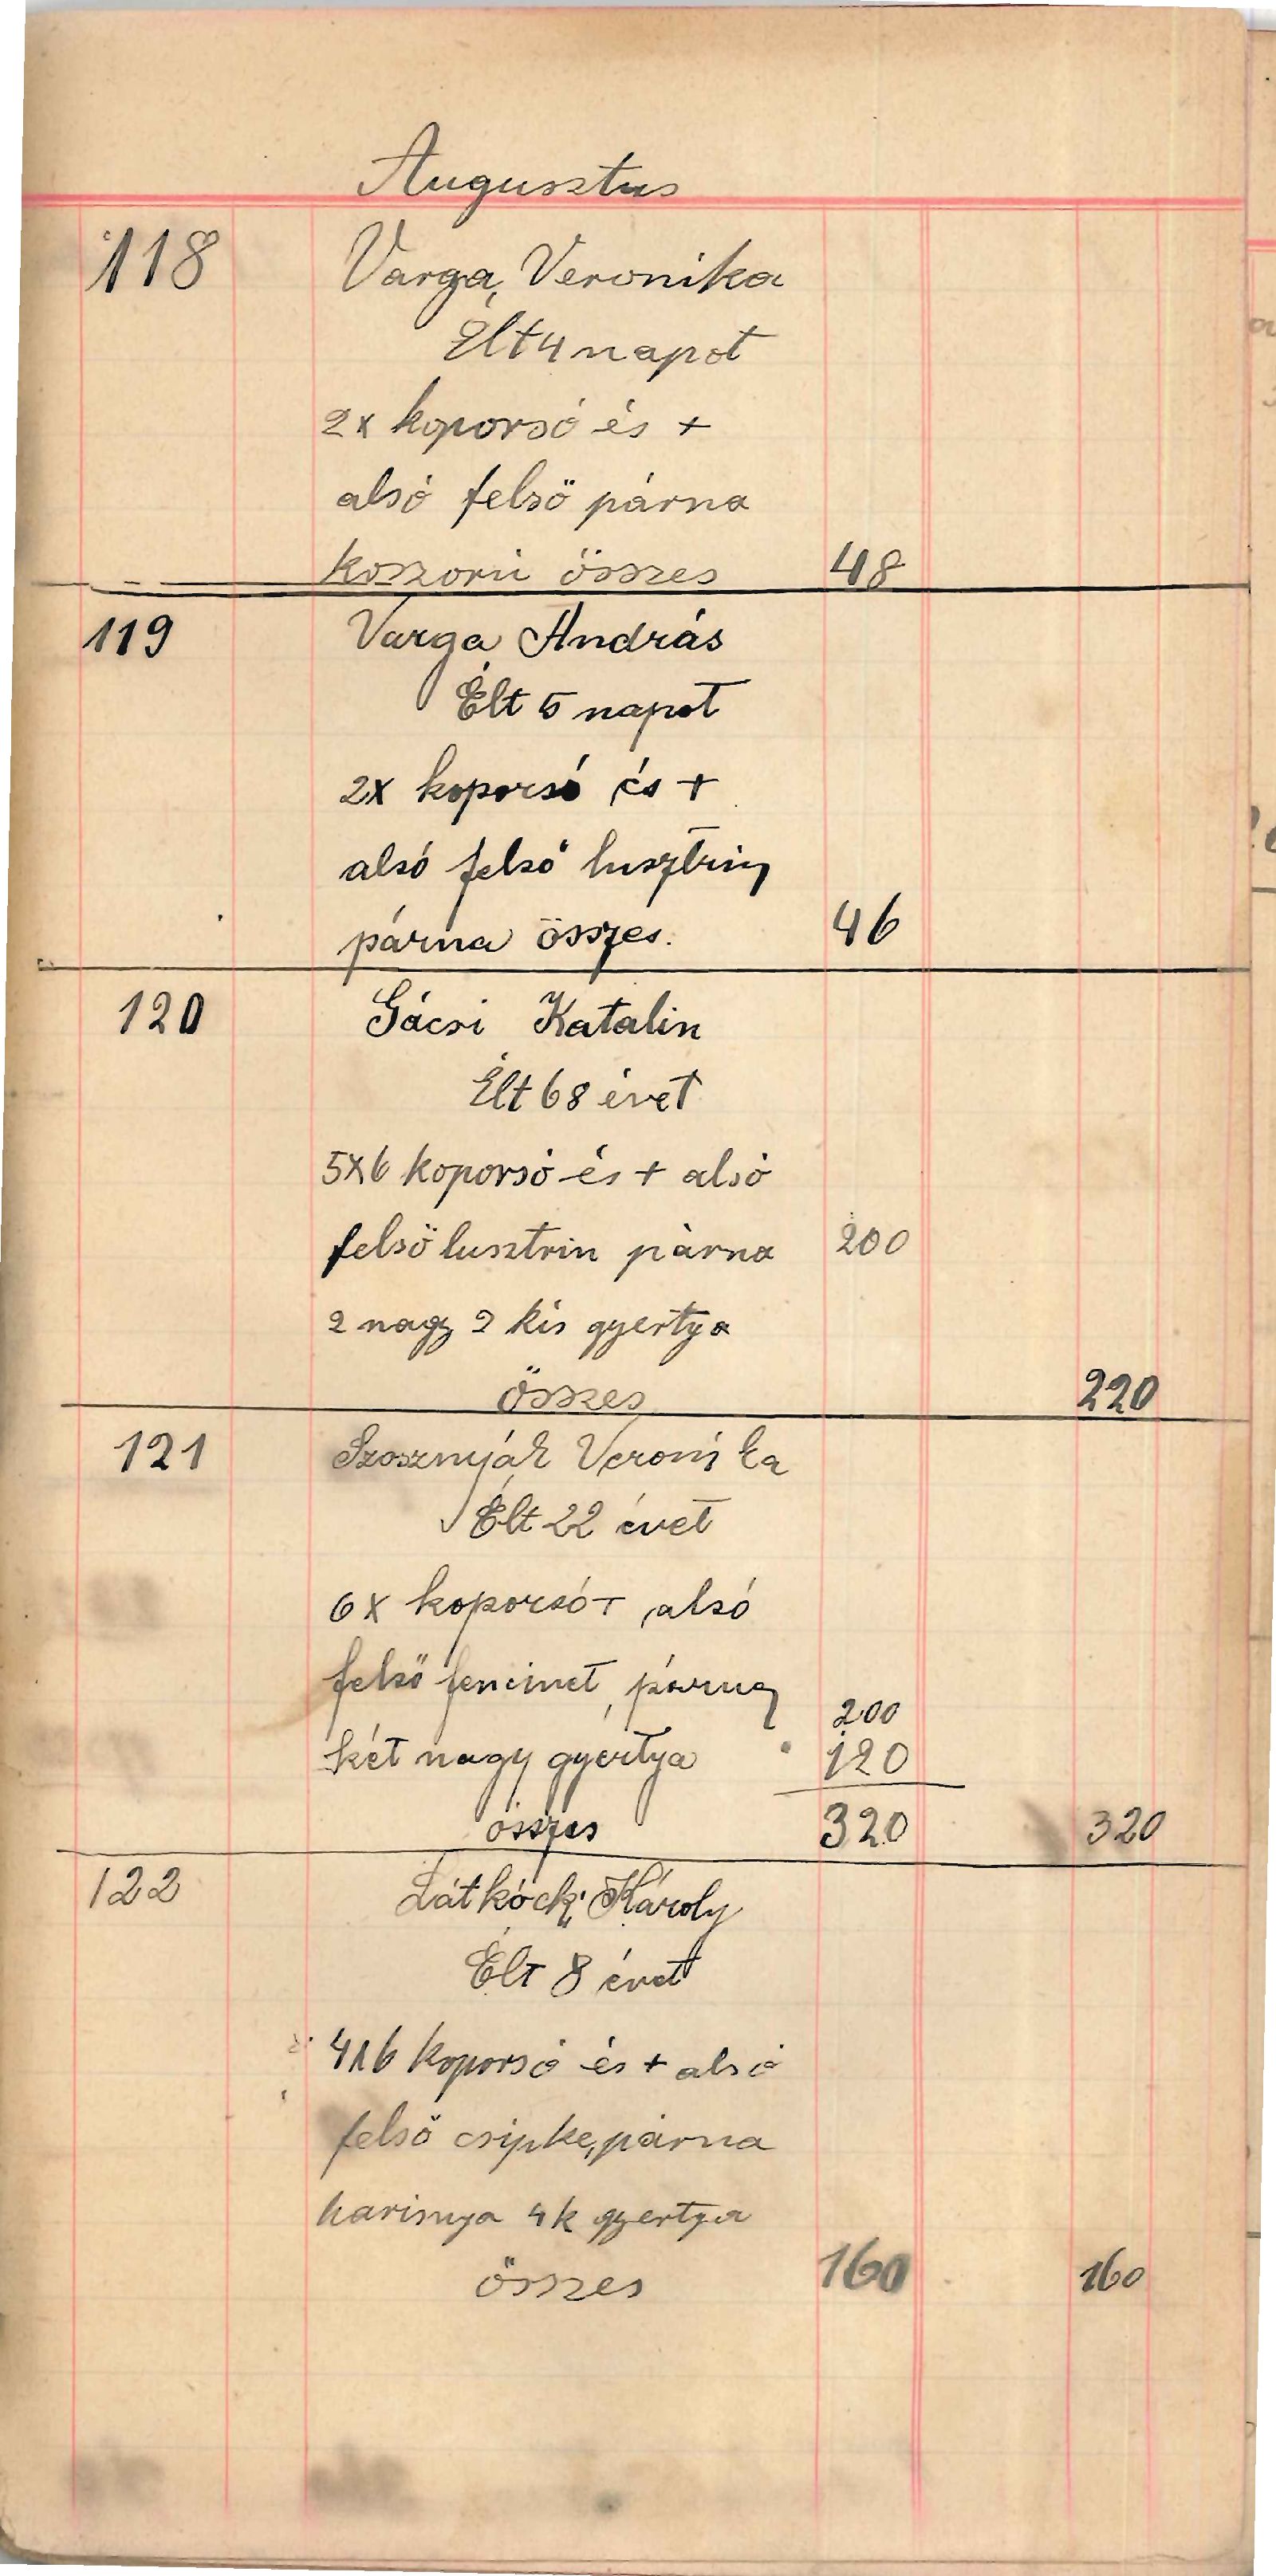 Augusztus
118 Varga Veronika
Élt 4 napot
2x koporsó és +
alsó felső párna
koszorú összes 48
119 Varga András
Élt 5 napot
2x koporsó és +
alsó felső lusztrin
párna összes. 46
120 Gácsi Katalin
Élt 68 évet
5x6 koporsó és + alsó
felső lusztrin párna 200
2 nagy 2 kis gyertya
összes 220
121 Szosznyák Veronika
Élt 22 évet
6x koporsó + alsó
felső párna
200
két nagy gyertya 120
összes 320 320
122 Károly
Élt 8 évet
4x6 koporsó és + alsó
felső csipke, párna
harisnya 4 k gyertya
összes 160 160